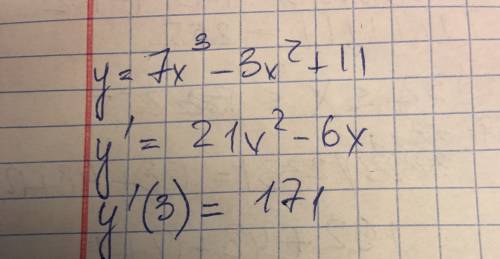 y = 7x³ - 3x² + 11
y' = 21x² - 6x
y'(3) = 171